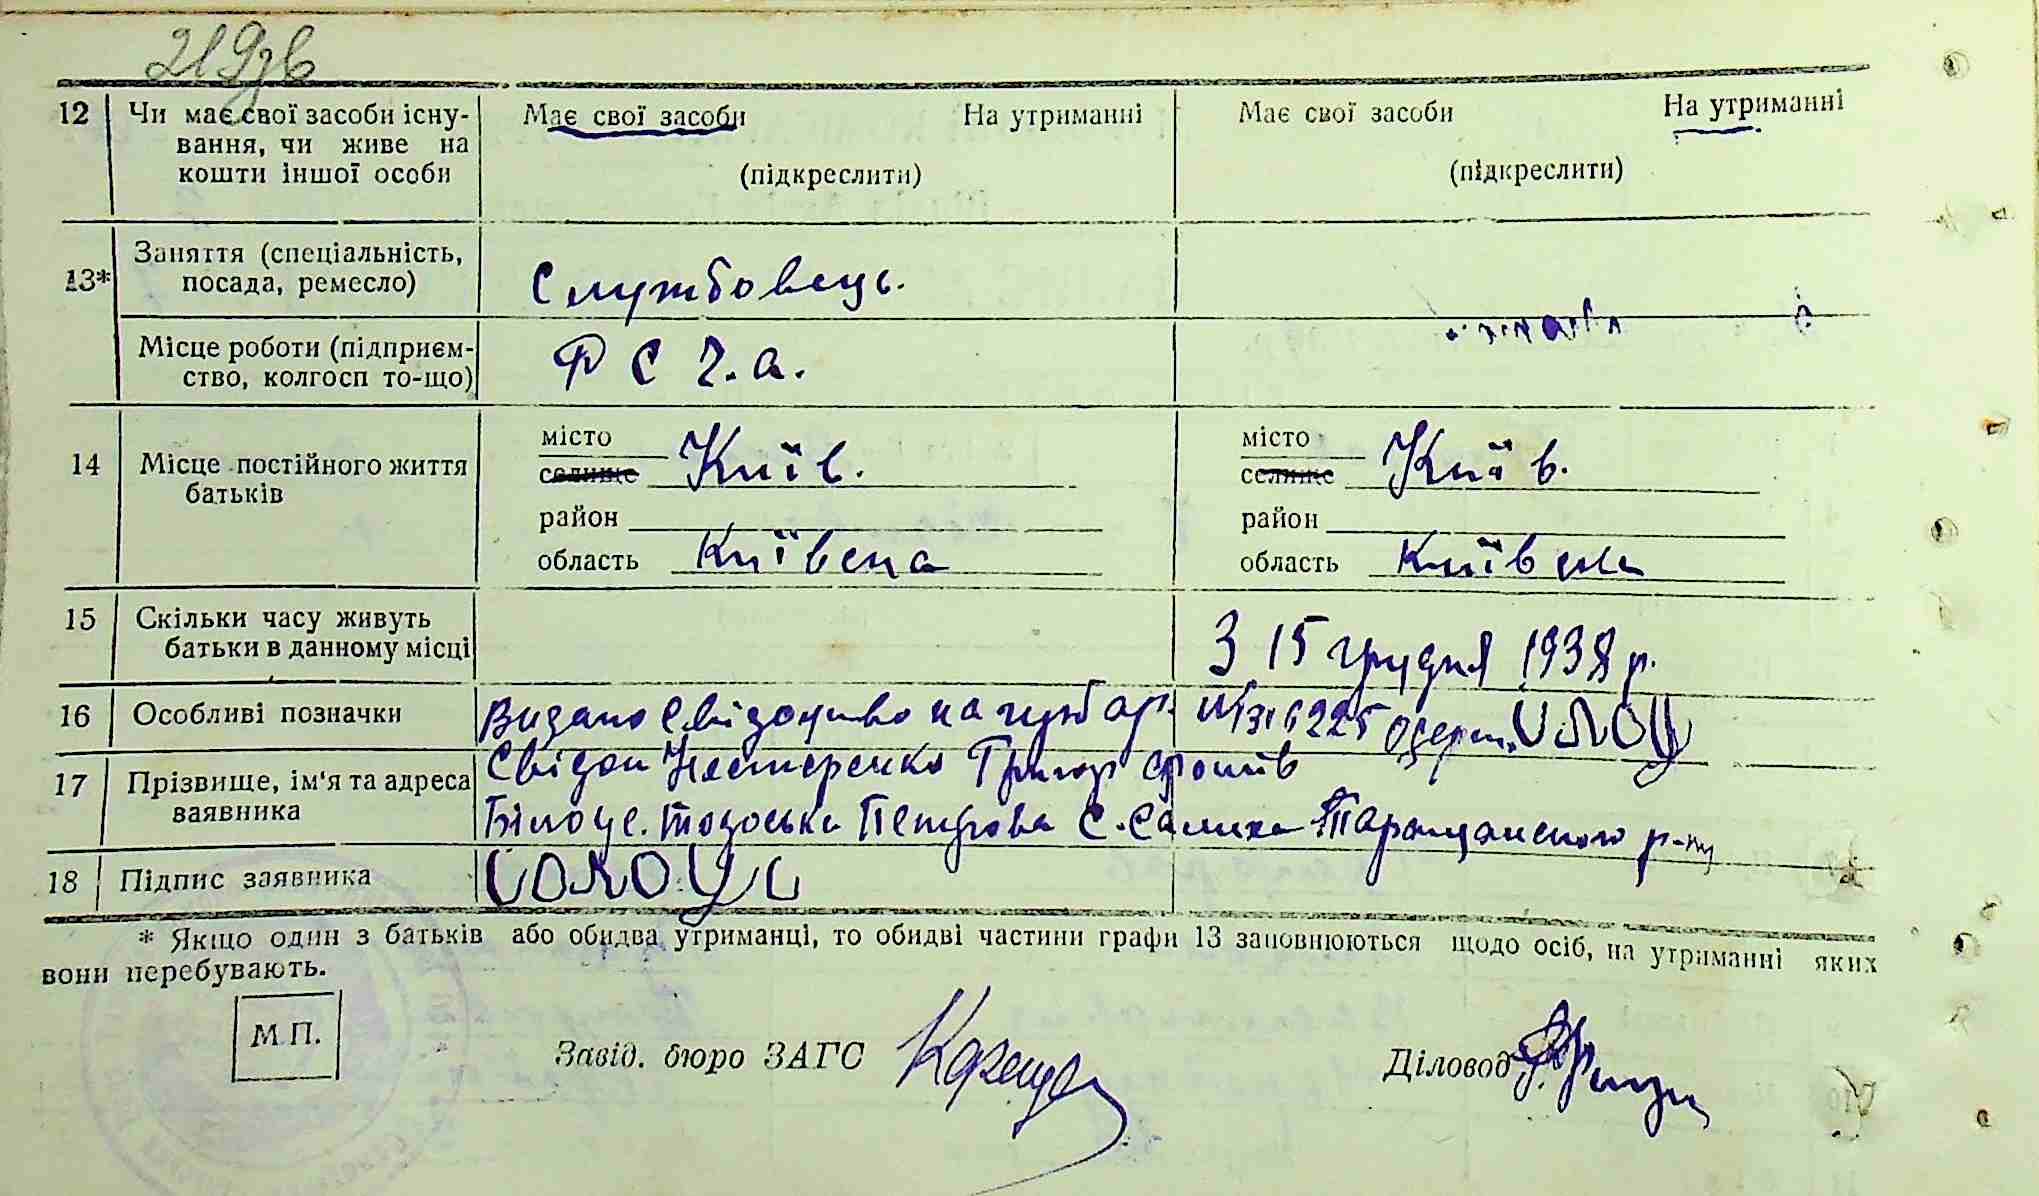 219зв
12 Чи має свої засоби існу- Має свої засоби На утриманні Має свої засоби На утриманні
вання, чи живе на
кошти іншої особи (підкреслити) (підкреслити)
13* Заняття (спеціальність,
посада, ремесло) Службовець.
Місце роботи (підприєм-
ство, колгосп то-що) Р С Ч. А.
14 Місце постійного життя
батьків
місто Київ. місто Київ.
селище селище
район район
область Київська область Київська
15 Скільки часу живуть
батьки в данному місці З 15 грудня 1938 р.
16 Особливі позначки Видано свідоцтво на
17 Прізвище, ім'я та адреса
заявника
Свідки Нестеренко
Петрова С. Таращанского р-ну
18 Підпис заявника
* Якщо один з батьків або обидва утриманці, то обидві частини графи 13 заповнюються щодо осіб, на утриманні яких
вони перебувають.
М.П.
Завід. бюро ЗАГС Діловод